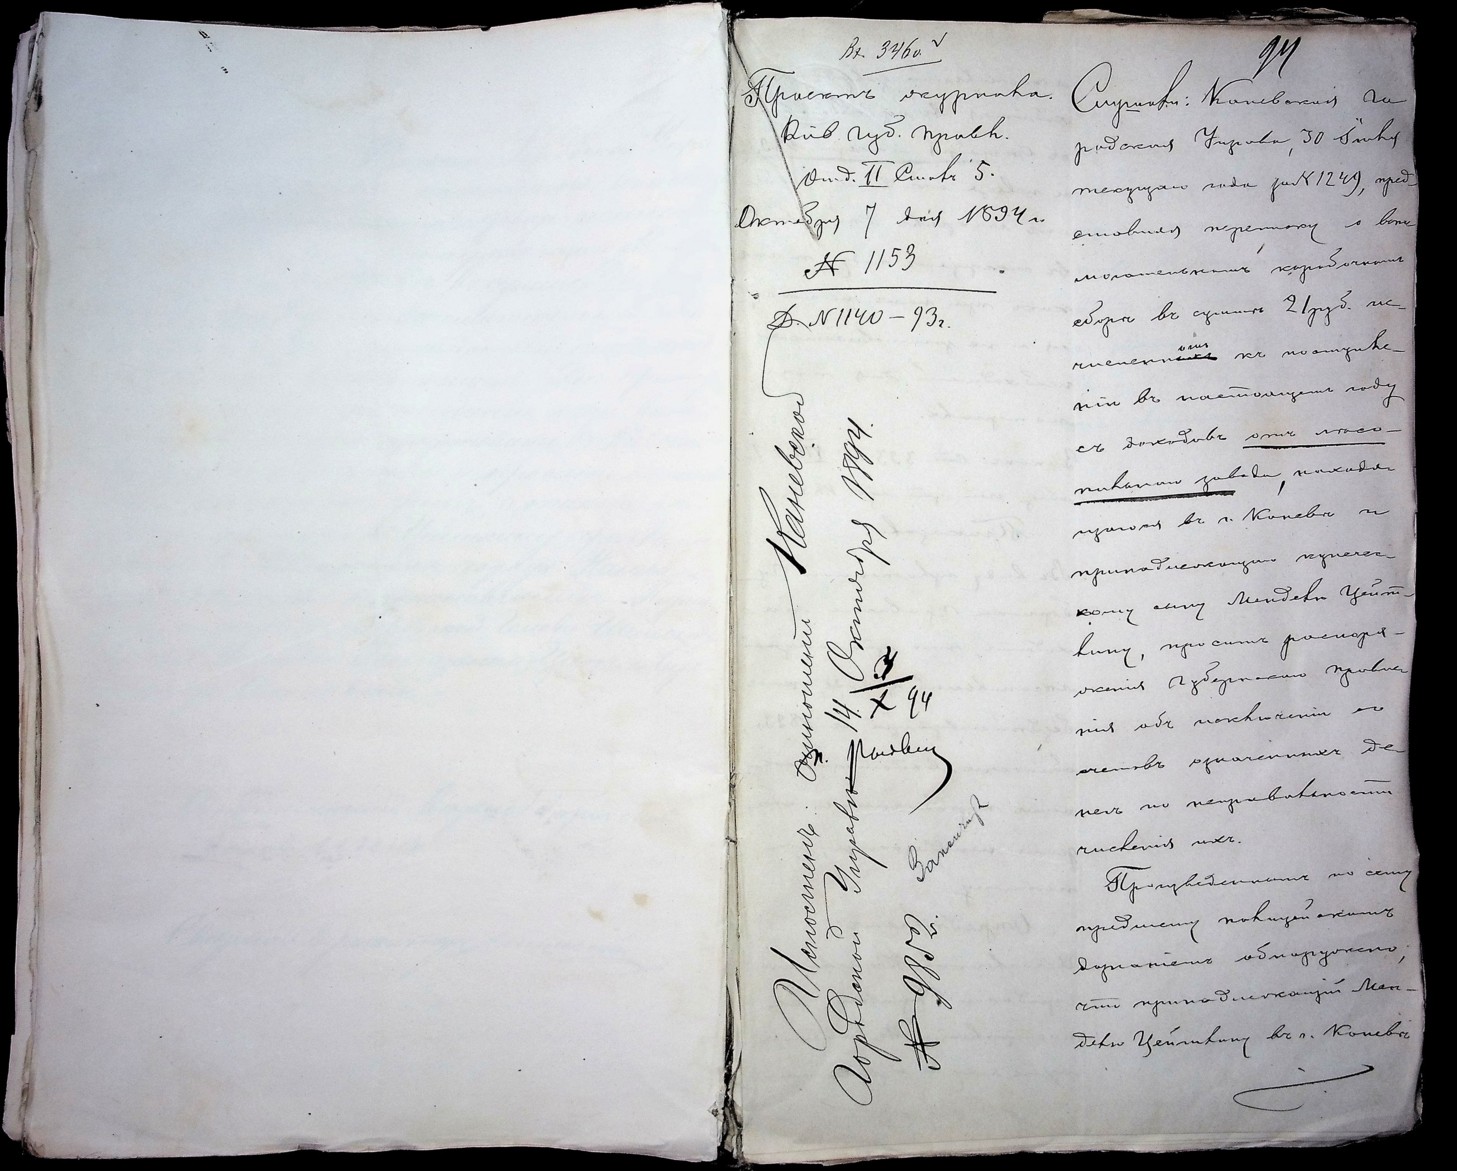 Вх. 3460
94
Проектъ журнала.
Кіев. губ. правл.
Отд. II Столъ 5.
Октября 7 дня 1894 г.
№ 1153
Д. № 1140 – 93 г.
Исполненъ: отношеніемъ Каневской
Городской Управѣ 14 Октября 1894.
№ 9852.
Слушали: Каневская Го
родская Управа, 30 Іюня
текущаго года за № 1249, пред
ставила переписку о вспо
могательномъ коробочномъ
сборѣ въ суммѣ 21 руб. ис-
численн къ поступле-
нію въ настоящемъ году
съ доходовъ отъ пиво-
вареннаго завода, находя
щагося въ г. Каневѣ и
принадлежащаго купечес
кому сыну Менделю Цейт-
лину, проситъ распоря-
женія Губернскаго Правле
нія объ исключеніи со
счетовъ означенныхъ де-
негъ по неправильности
численія ихъ.
Произведеннымъ по сему
предмету полицейскимъ
дознаніемъ обнаружено,
что принадлежащій Мен-
делю Цейтлину въ г. Каневѣ